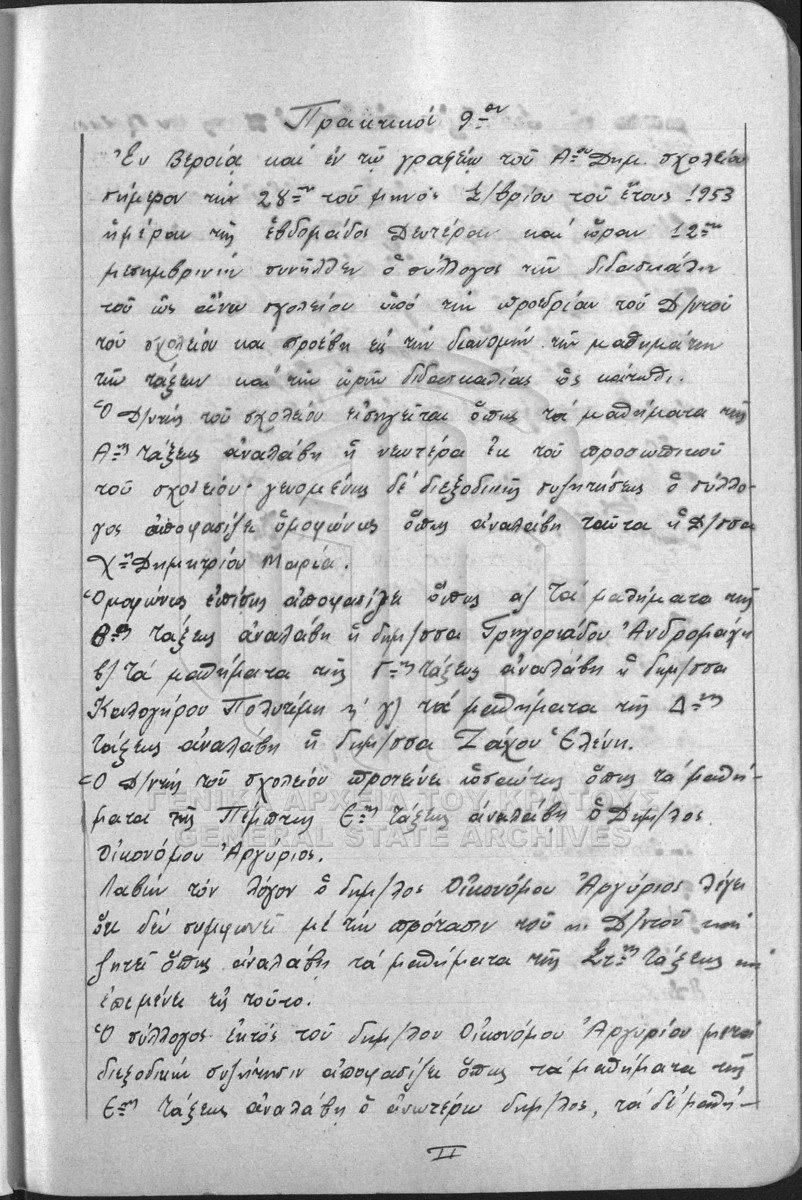 Πρακτικόν 9ον
Ἐν Βεροίᾳ καὶ ἐν τῷ γραφείῳ τοῦ Αου Δημ. σχολείου
σήμερον τὴν 28ην τοῦ μηνὸς Σ/βρίου τοῦ ἔτους 1953
ἡμέραν τῆς ἑβδομάδος Δευτέραν καὶ ὥραν 12ην
μεσημβρινὴν συνῆλθεν ὁ σύλλογος τῶν διδασκάλων
τοῦ ὡς ἄνω σχολείου ὑπὸ τὴν προεδρίαν τοῦ Δ/ντοῦ
τοῦ σχολείου καὶ προέβη εἰς τὴν διανομὴν τῶν μαθημάτων
τῶν τάξεων καὶ τῶν ὡρῶν διδασκαλίας ὡς κάτωθι.
Ὁ Δ/ντὴς τοῦ σχολείου εἰσηγεῖται ὅπως τὰ μαθήματα τῆς
Αης τάξεως ἀναλάβῃ ἡ νεωτέρα ἐκ τοῦ προσωπικοῦ
τοῦ σχολείου· γενομένης δὲ διεξοδικῆς συζητήσεως ὁ σύλλο-
γος ἀποφασίζει ὁμοφώνως ὅπως ἀναλάβῃ ταῦτα ἡ Δ/σσα
Χ"Δημητρίου Μαρία.
Ὁμοφώνως ἐπίσης ἀποφασίζει ὅπως α) Τὰ μαθήματα τῆς
Βας τάξεως ἀναλάβῃ ἡ δημ/σσα Γρηγοριάδου Ἀνδρομάχη
β) τὰ μαθήματα τῆς Γης τάξεως ἀναλάβῃ ἡ δημ/σσα
Καλογήρου Πολυτίμη κ' γ) τὰ μαθήματα τῆς Δης
τάξεως ἀναλάβῃ ἡ δημ/σσα Ζάχου Ἑλένη.
Ὁ Δ/ντὴς τοῦ σχολείου προτείνει ὡσαύτως ὅπως τὰ μαθή-
ματα τῆς Πέμπτης Εης τάξεως ἀναλάβῃ ὁ Δημ/λος
Οἰκονόμου Ἀργύριος.
Λαβὼν τὸν λόγον ὁ δημ/λος Οἰκονόμου Ἀργύριος λέγει
ὅτι δὲν συμφωνεῖ μὲ τὴν πρότασιν τοῦ κ. Δ/ντοῦ καὶ
ζητεῖ ὅπως ἀναλάβῃ τὰ μαθήματα τῆς ΣΤης τάξεως καὶ
ἐπιμένει εἰς τοῦτο.
Ὁ σύλλογος ἐκτὸς τοῦ δημ/λου Οἰκονόμου Ἀργυρίου μετὰ
διεξοδικὴν συζήτησιν ἀποφασίζει ὅπως τὰ μαθήματα τῆς
Εης τάξεως ἀναλάβῃ ὁ ἀνωτέρω δημ/λος, τὰ δὲ μαθή-
ΓΕΝΙΚΑ ΑΡΧΕΙΑ ΤΟΥ ΚΡΑΤΟΥΣ
GENERAL STATE ARCHIVES